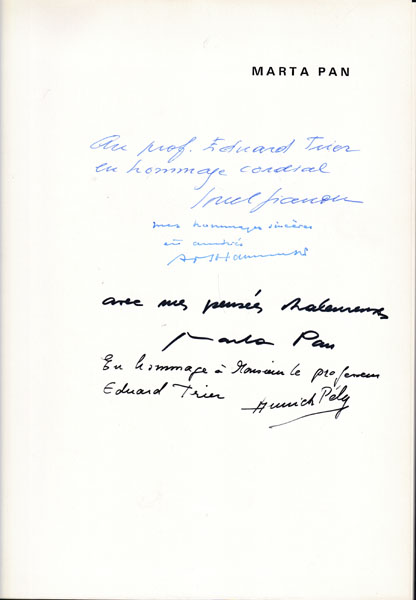 MARTA PAN
Au prof. Eduard Trier
en hommage cordial
Ionel Jianou
mes hommages sincères
et
avec mes pensées chaleureuses
Marta Pan
En hommage à Monsieur le professeur
Eduard Trier
Pély